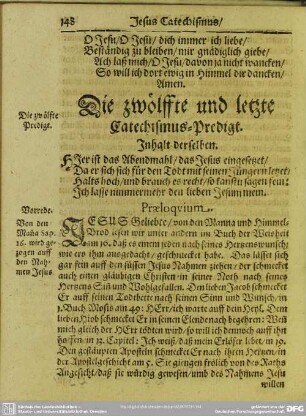 148 Jesus Catechismus/
O Jesu/ O Jesu/ dich immer ich liebe/
Beständig zu bleiben/ mir gnädiglich giebe/
Ach laß mich/ O Jesu/ davon ja nicht wancken/
So will ich dort ewig in Himmel dir dancken/
Amen.
Die zwölffte und letzte
Catechismus-Predigt.
Die zwölfte
Predigt.
Inhalt derselben.
Hier ist das Abendmahl/ das Jesus eingesetzt/
Da er sich für den Todt mit seinen Jüngern letzet/
Halts hoch/ und brauch es recht/ so kanstu sagen fein:
Ich lasse nimmermehr den lieben Jesum mein.
Præloqvium.
Vorrede.
Von den
Manna Sap.
16. wird ge-
zogen auff
den Nah-
men Jesus.
JESUS Geliebte/ von den Manna und Himmel-
Brod lesen wir unter andern im Buch der Weisheit
am 16. daß es einem jeden nach seines Hertzens wunsch/
wie ers ihm ausgedacht/ geschmecket habe. Das lässet sich
gar fein auff den süssen Jesus Nahmen ziehen/ der schmecket
auch einen gläubigen Christen in seiner Noth nach seines
Hertzens Sinn und Wohlgefallen. Den lieben Jacob schmecket
Er auff seinen Todtbette nach seinen Sinn und Wunsch/ in
1. Buch Mosis am 49: HErr/ ich warte auff dein Heyl. Den
lieben Hiob schmecket Er in seinen Elende nach begehren: Wenn
mich gleich der HErr tödten wird/ so will ich dennoch auff ihn
hoffen/ in 13. Capitel: Ich weiß/ daß mein Erlöser lebet/ in 19.
Den gestäupten Aposteln schmecket Er nach ihren Hertzen/ in
der Apostelgeschicht am 5. Sie giengen frölich von des Raths
Angesicht/ daß sie würdig gewesen/ umb des Nahmens Jesu
willen